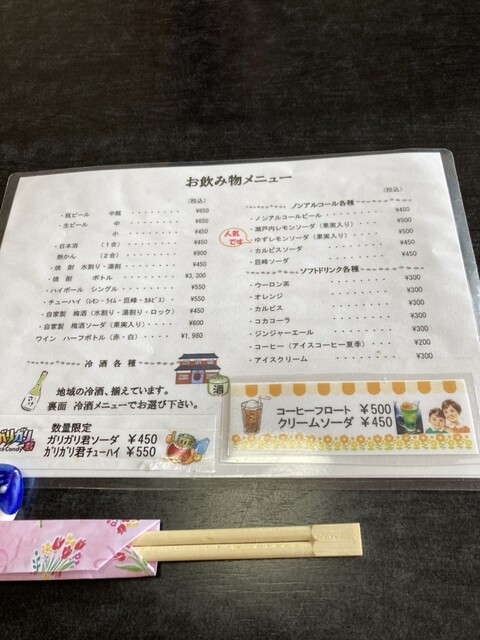 お飲み物メニュー
(税込)
・瓶ビール 中瓶 ・・・・・・・・ ¥650
・生ビール 中 ・・・・・・・・ ¥650
小 ・・・・・・・・ ¥450
・日本酒 (1合) ・・・・・・・・ ¥450
熱かん (2合) ・・・・・・・・ ¥900
・焼酎 水割り・湯割 ・・・・・・・・ ¥450
・焼酎 ボトル ・・・・・・・・ ¥3,300
・ハイボール シングル ・・・・・・・ ¥550
・チューハイ (レモン・ライム・巨峰・カルピス) ・ ¥550
・自家製 梅酒 (水割り・湯割り・ロック) ¥450
・自家製 梅酒ソーダ (果実入り) ・・・・ ¥600
ワイン ハーフボトル (赤・白) ・・・・ ¥1,980
冷酒各種
地域の冷酒、揃えています。
裏面 冷酒メニューでお選び下さい。
酒
数量限定
ガリガリ君ソーダ ¥450
ガリガリ君チューハイ ¥550
(税込)
ノンアルコール各種
・ノンアルコールビール ・・・・・・・・ ¥450
・瀬戸内レモンソーダ (果実入り) ・・・・ ¥500
人気です
・ゆずレモンソーダ (果実入り) ・・・・ ¥500
・カルピスソーダ ¥450
・巨峰ソーダ ¥450
ソフトドリンク各種
・ウーロン茶 ¥300
・オレンジ ¥300
・カルピス ¥300
・コカコーラ ¥300
・ジンジャーエール ¥300
・コーヒー (アイスコーヒー夏季) ・・・ ¥200
・アイスクリーム ¥300
コーヒーフロート ¥500
クリームソーダ ¥450